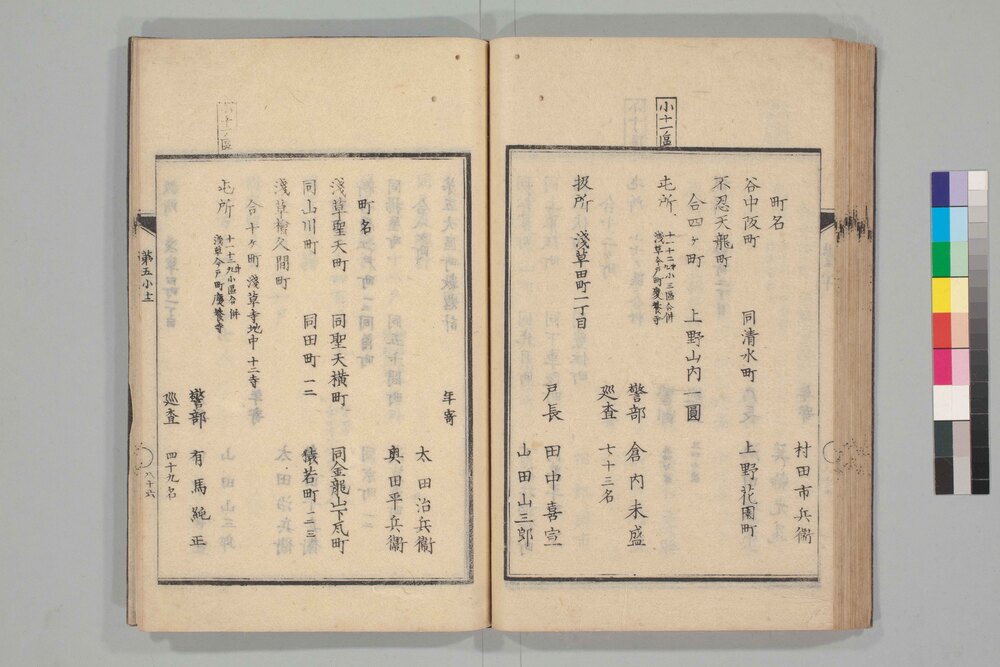 村田市兵衞
町名
谷中阪町 同清水町 上野花園町
不忍天龍町
合四ヶ町 上野山内一圓
小十一區
屯所 十一十二九小三區合併 淺草今戸町慶養寺
警部 倉内末盛
廵査 七十三名
扱所 淺草田町一丁目
戸長 田中喜宣
山田山三郎
年寄
太田治兵衞
奥田平兵衞
町名
淺草聖天町 同聖天横町 同金龍山下瓦町
同山川町 同田町一二 猿若町一二三
淺草檜久間町
合十ヶ町 淺草寺地中十二寺
屯所 淺草今戸町慶養寺
警部 有馬純正
廵査 四十九名
第五小十
八十六